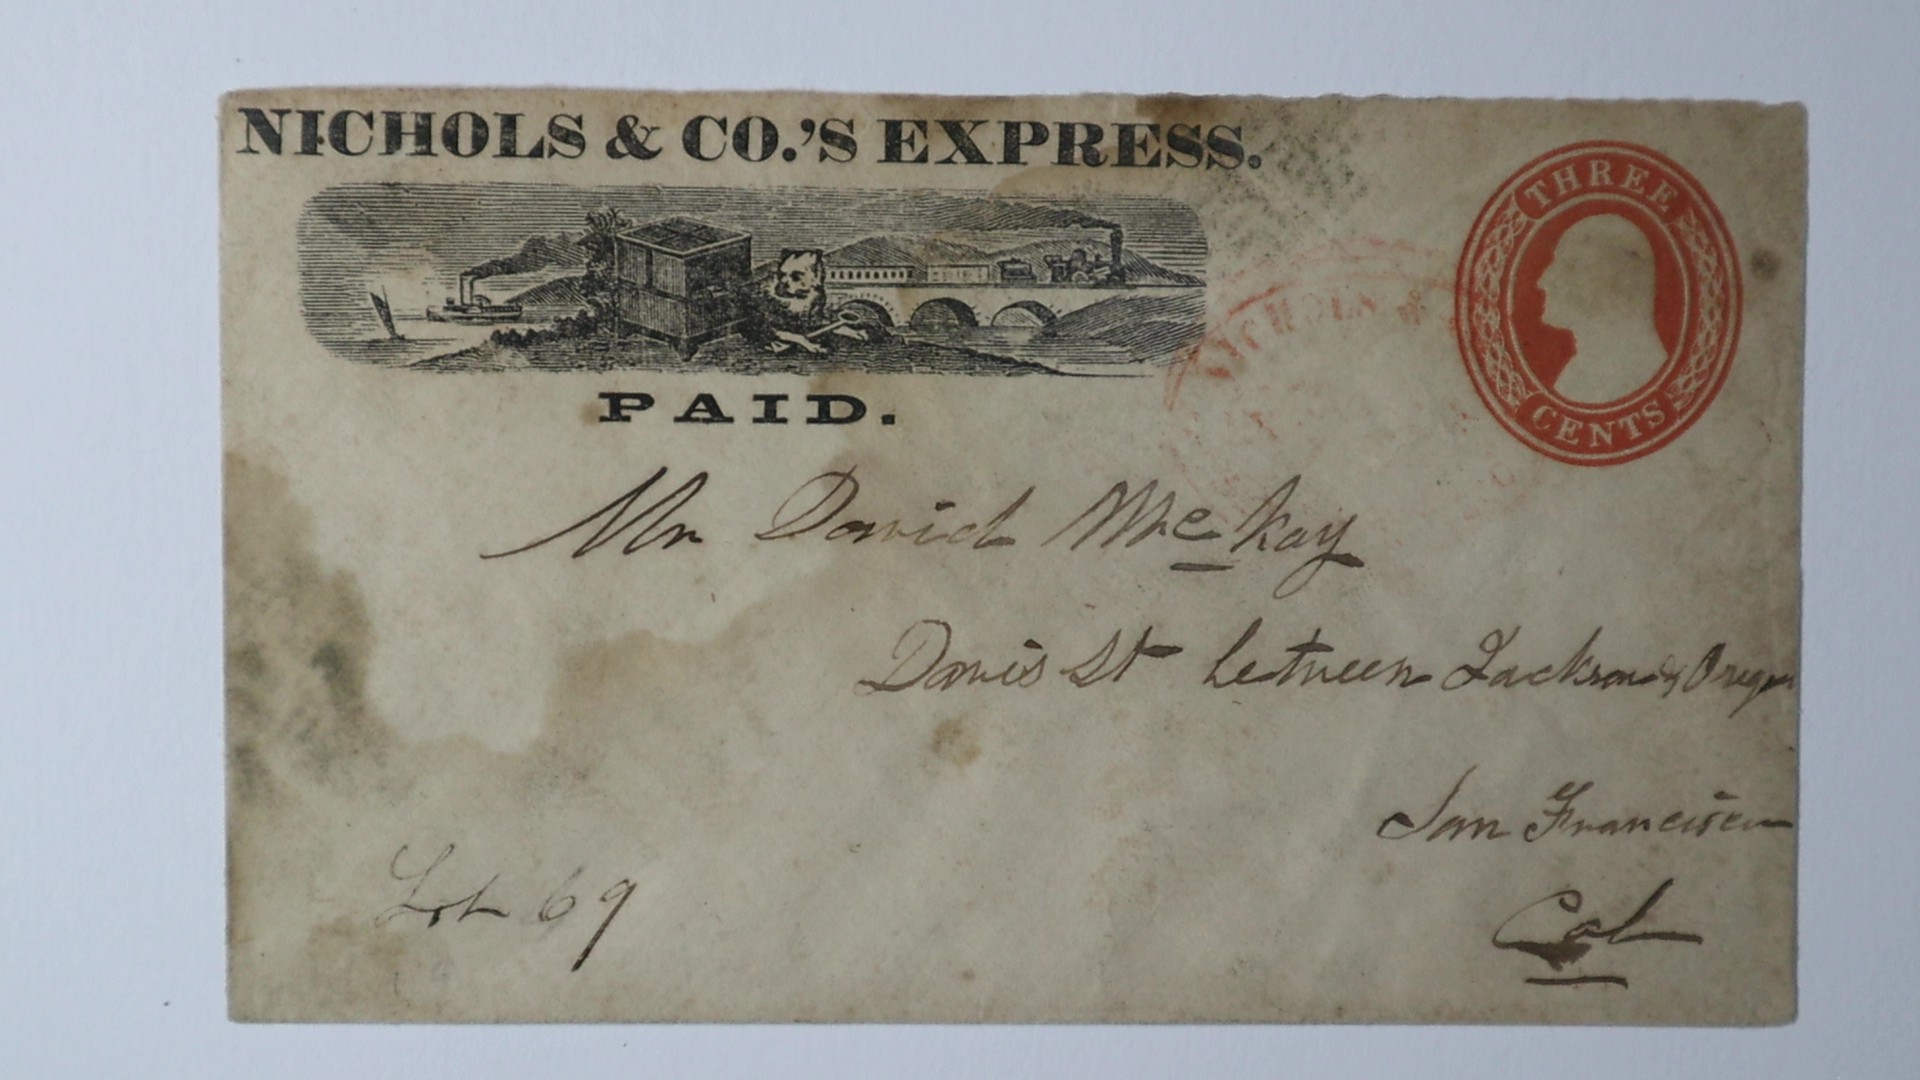 NICHOLS & CO.'S EXPRESS.
THREE
CENTS
NICHOLS &
PAID.
Mr David McKay
Davis St between Jackson & Oregon
San Francisco
Cal
Lot 69